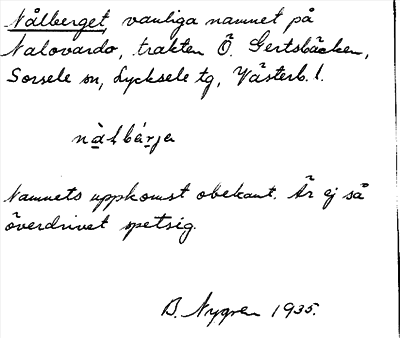 Nålberget, vanliga namnet på
Nalovardo, trakten Ö. Gertsbäcken,
Sorsele sn, Lycksele tg, Västerb. l.
nȧlbärja
Namnets uppkomst obekant. Är ej så
överdrivet spetsig.
B. Nygren 1935.